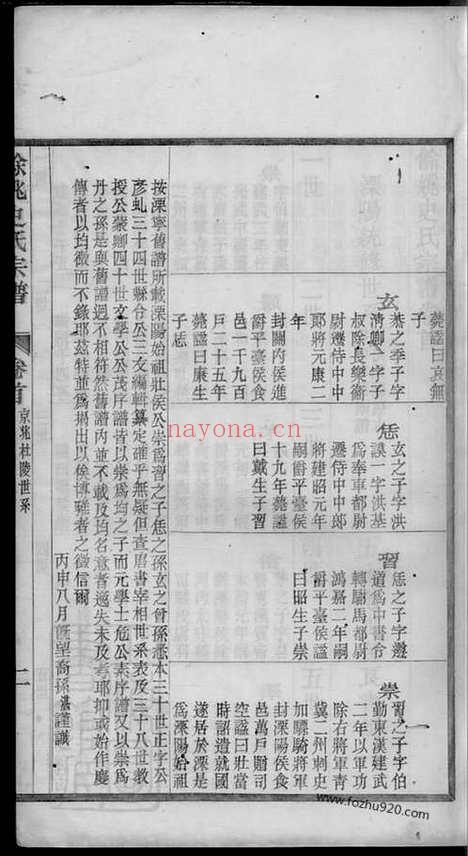 薨謚曰哀無
子
玄
恭之季子字
清卿一字子
叔除良樂衛
尉遷侍中中
郎將元康二
年
封關內侯進
爵平臺侯食
邑一千九百
戶二十五年
薨謚曰康生
子恁
恁
玄之子字洪
謨一字洪基
爲奉車都尉
遷侍中中郎
將建昭元年
嗣爵平臺侯
十九年薨謚
曰戴生子習
習
恁之子字遵
道爲中書令
轉駙馬都尉
鴻嘉二年嗣
爵平臺侯謚
曰昭生子崇
崇
習之子字伯
勤東漢建武
二年以軍功
除右將軍青
冀二州刺史
加驃騎將軍
封溧陽侯食
邑萬戶贈司
空謚曰壯當
時詔遣就國
遂居於溧是
爲溧陽始祖
按溧寧舊譜所載溧陽始祖壯侯公崇爲習之子恁之孫玄之曾孫悉本三十世正字公
彥虬三十四世縣台公三文編輯纂定確乎無疑但查唐書宰相世系表及三十八世教
授公蒙卿四十世文學公公茂序譜皆以崇爲均之子而元學士危公素序譜又以崇爲
丹之孫是與舊譜迥不相符然舊譜內並不載及均名意者迤失未及考耶抑或始作慶
傳者以均微而不錄耶茲特並爲揭出以俟博雅者之徵信爾
丙申八月既望裔孫 謹識
餘姚史氏宗譜
卷首
京兆杜陵世系
二
nayona.cn
www.fozhu920.com